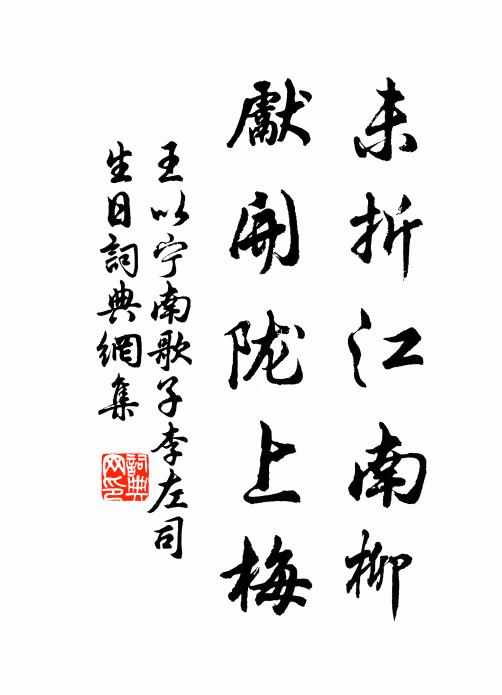 未折江南柳
獻開陇上梅
王以宁南歌子李左司
生日詞典網集
詞典
网印